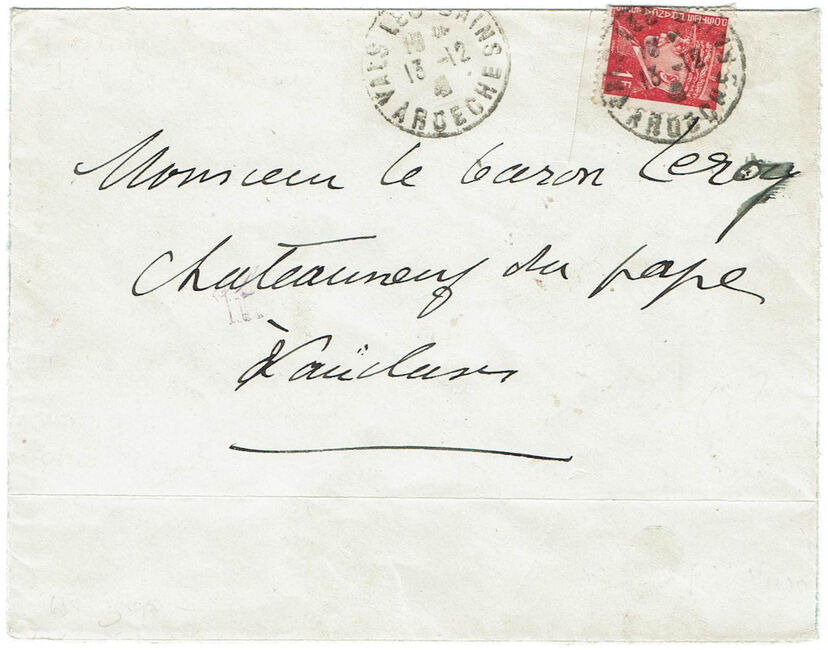 VALS LES BAINS
18
13-12
41
ARDECHE
1F
Monsieur le baron Leroy
chateauneuf du pape
Vaucluse